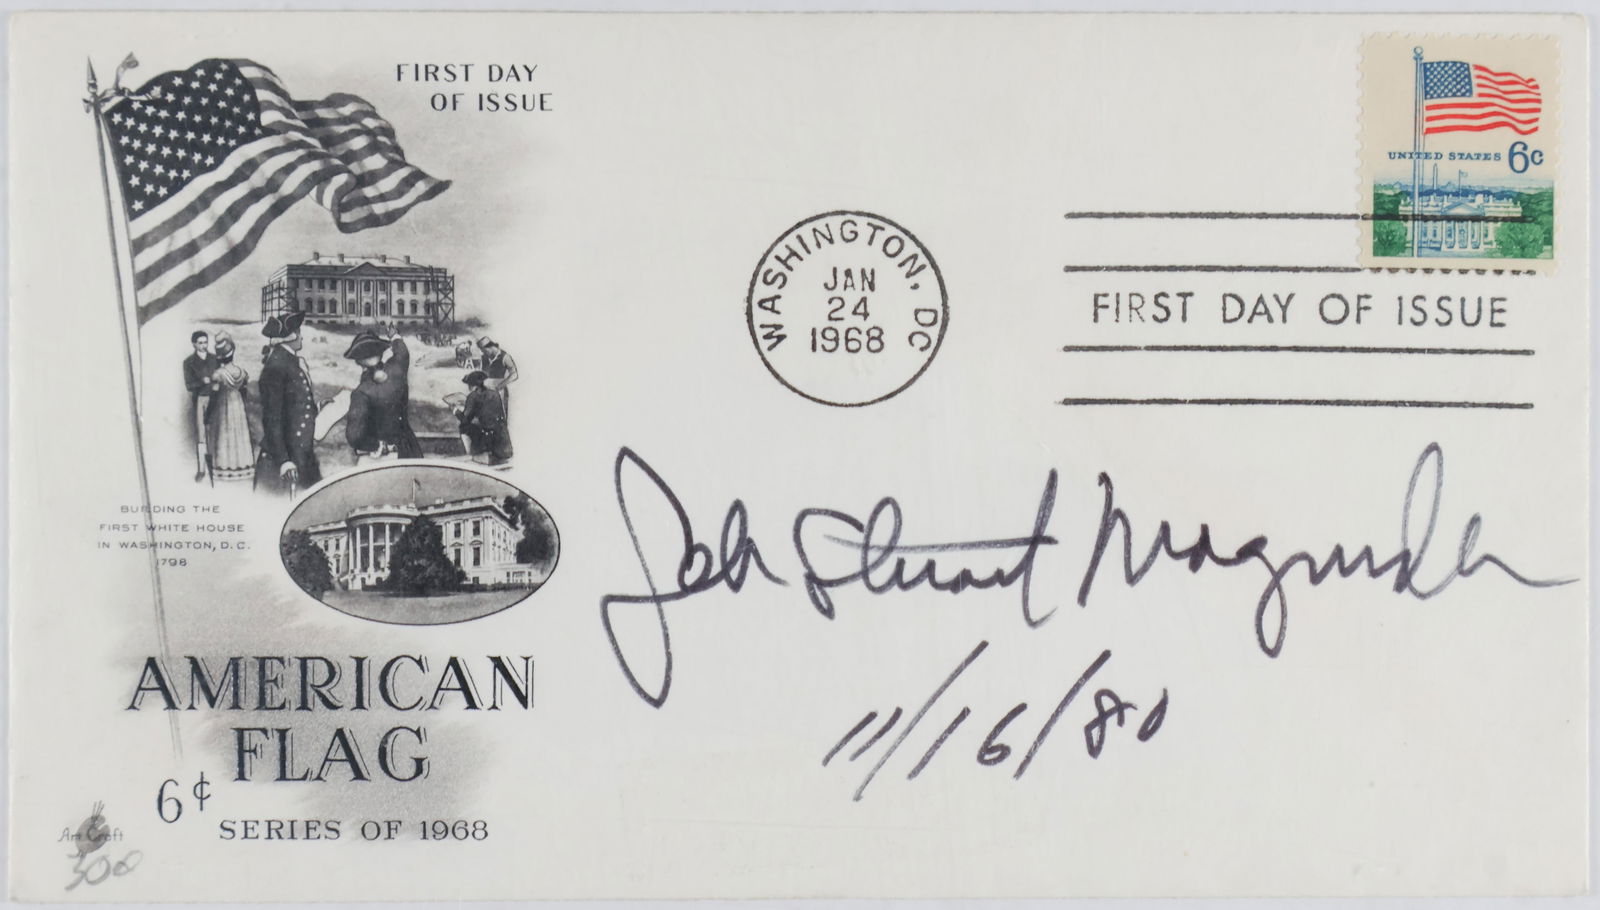 FIRST DAY
OF ISSUE
UNITED STATES 6c
WASHINGTON, DC
JAN
24
1968
FIRST DAY OF ISSUE
BUILDING THE
FIRST WHITE HOUSE
IN WASHINGTON, D.C.
1798
Jeb Stuart Magruder
11/16/80
AMERICAN
FLAG
6¢
SERIES OF 1968
Art Craft
300